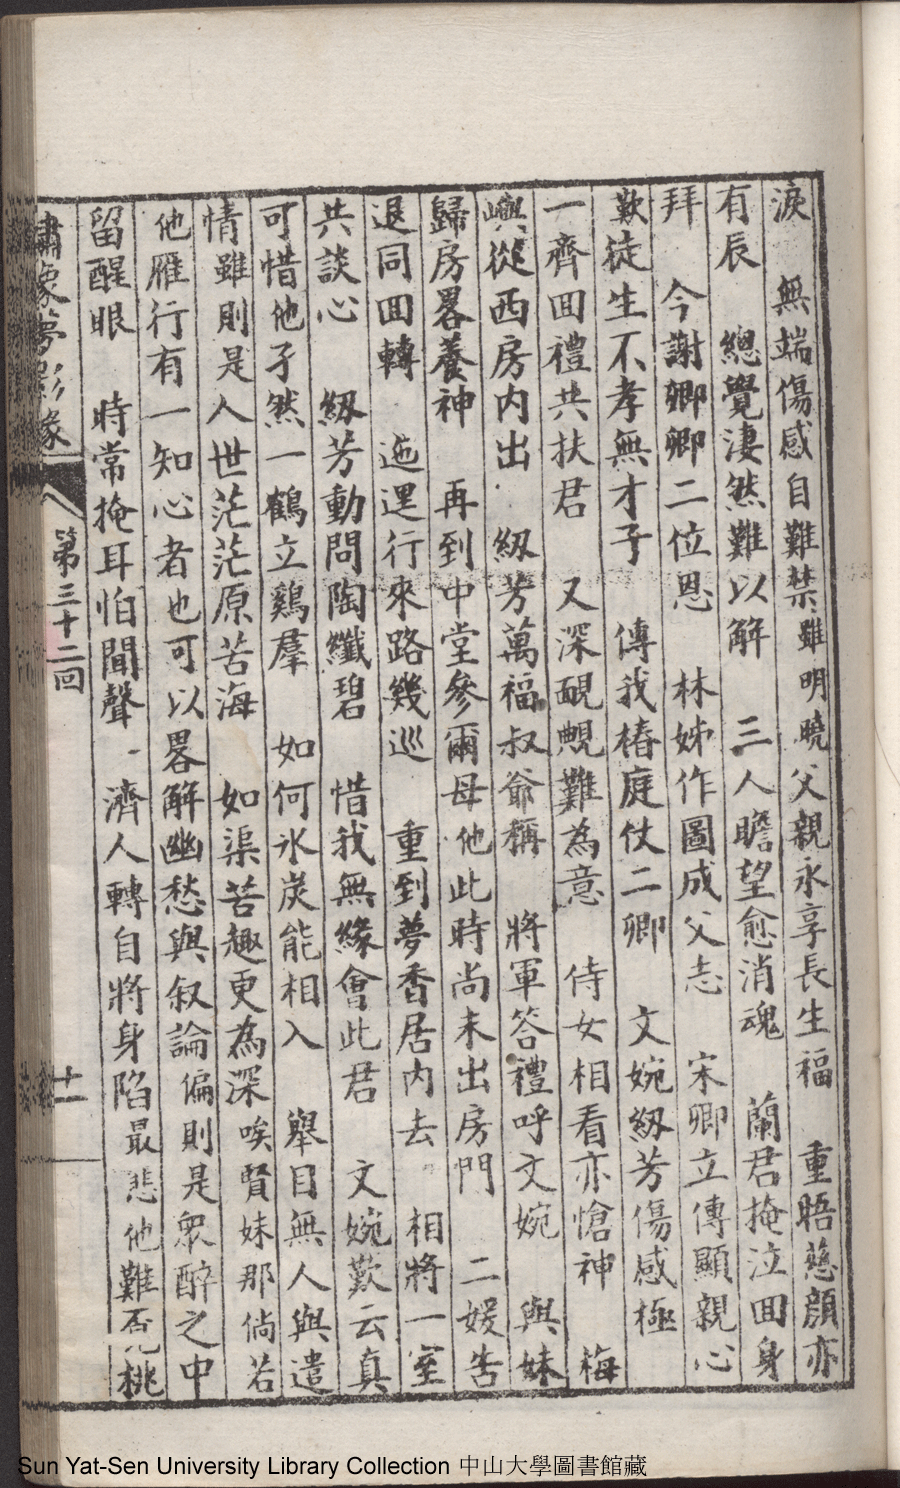 淚　無端傷感自難禁雖明曉父親永享長生福　重晤慈顏亦
有辰　總覺淒然難以解　三人瞻望愈消魂　蘭君掩泣回身
拜　今謝卿卿二位恩　林姊作圖成父志　宋卿立傳顯親心
歎徒生不孝無才子　傳我椿庭仗二卿　文婉紉芳傷感極
一齊回禮共扶君　又深靦覥難為意　侍女相看亦愴神　梅
嶼從西房內出　紉芳萬福叔爺稱　將軍答禮呼文婉　與妹
歸房畧養神　再到中堂參爾母他此時尚未出房門　二媛告
退同回轉　迤逕行來路幾巡　重到夢香居內去　相將一室
共談心　紉芳動問陶纖碧　惜我無緣會此君　文婉歎云真
可惜他孑然一鶴立鷄羣　如何氷炭能相入　舉目無人與遣
情雖則是人世茫茫原苦海　如渠苦趣更為深唉賢妹那倘若
他雁行有一知心者也可以畧解幽愁與叙論偏則是衆醉之中
留醒眼　時常掩耳怕聞聲　濟人轉自將身陷最悲他難否桃
繡像夢影緣　第三十二回　十一
Sun Yat-Sen University Library Collection 中山大學圖書館藏